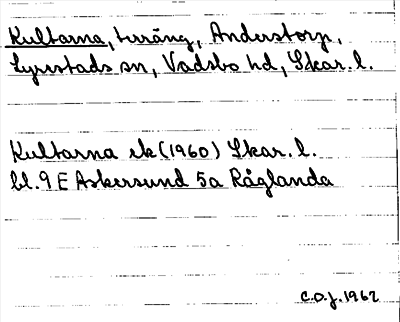 Kultarna, terräng, Anderstorp,
Lyrestads sn, Vadsbo hd, Skar. l.
Kultarna ek (1960) Skar. l.
bl. 9 E Askersund 5a Råglanda
C.O.J. 1962